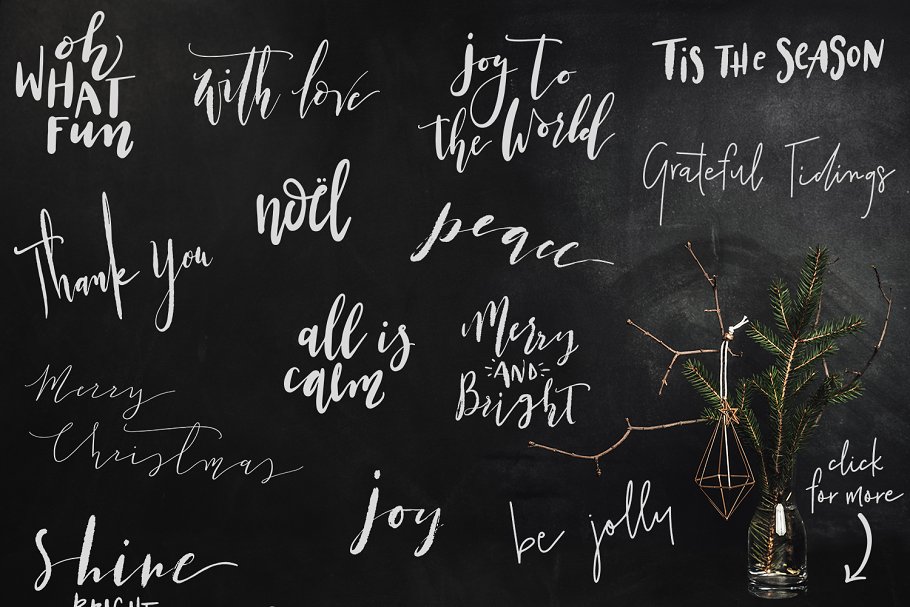 oh
WHAT
Fun
with love
Joy to
the World
Tis THE SEASON
Grateful Tidings
noël
Thank You
peace
all is
calm
Merry
AND
Bright
Merry
Christmas
joy
be jolly
click
for more
Shine
BRIGHT